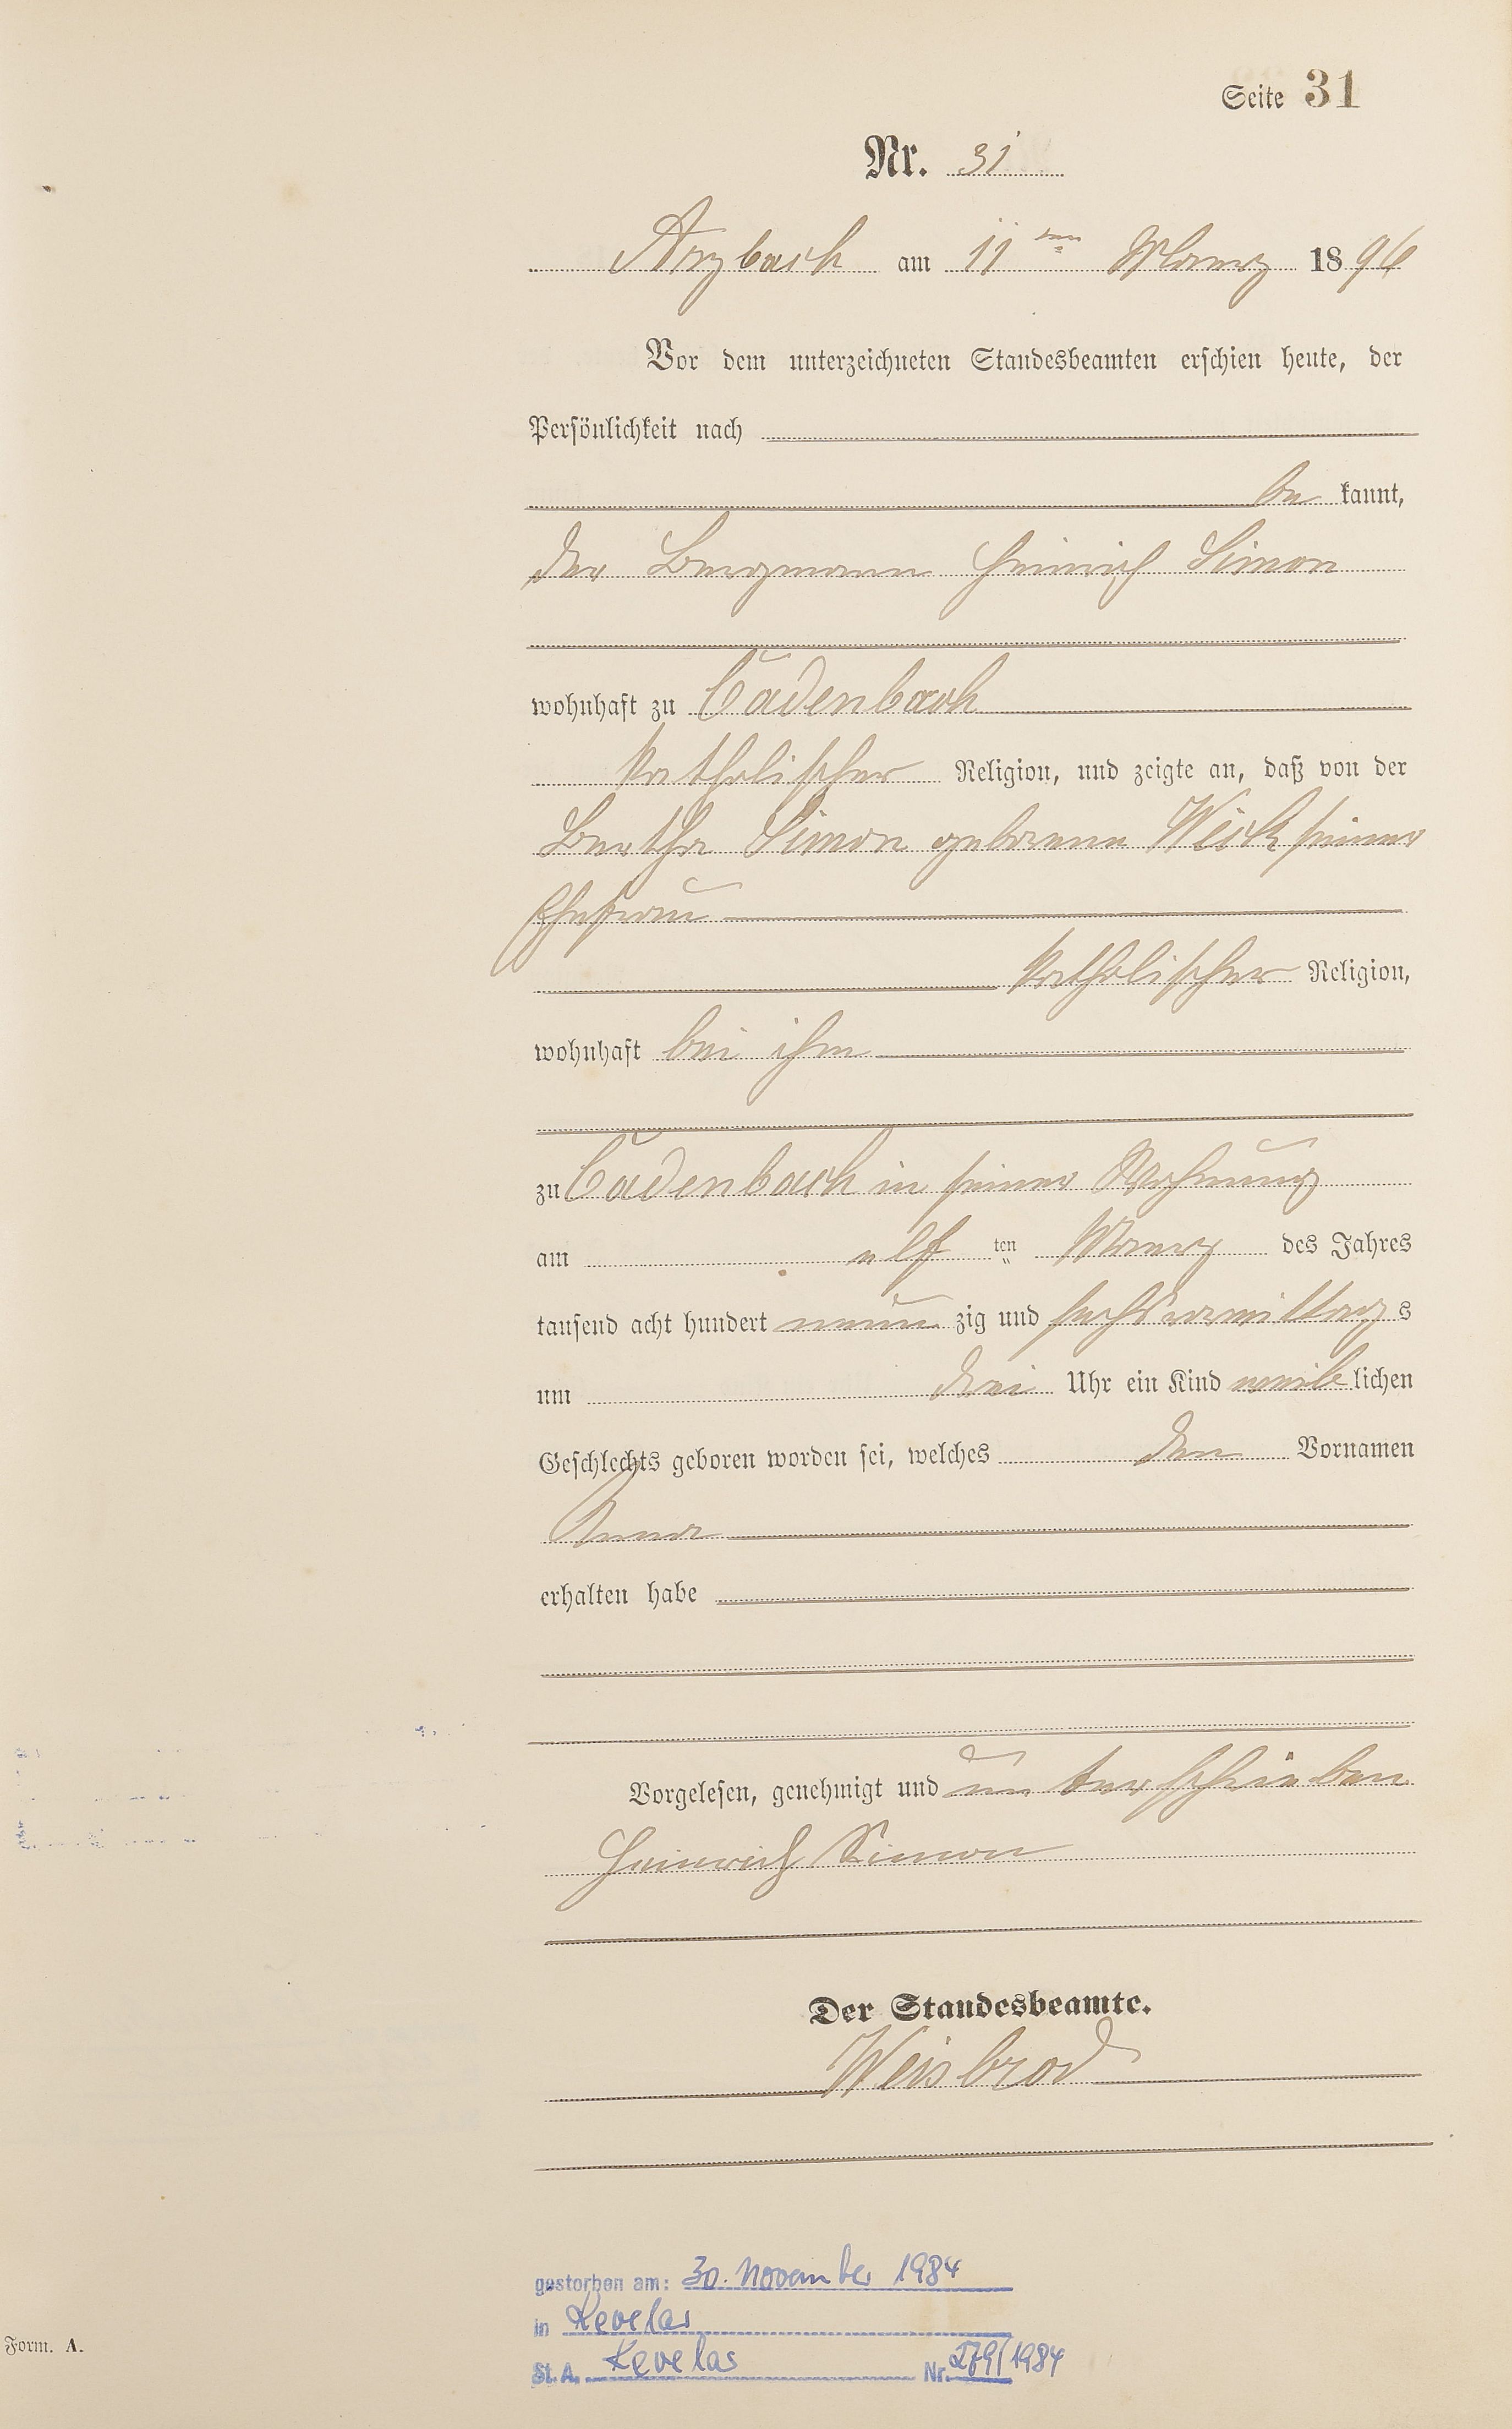 Seite 31
Nr. 31
Arzbach am 11ten Maerz 1896
Vor dem unterzeichneten Standesbeamten erschien heute, der
Persönlichkeit nach
be kannt,
der Bergmann Heinrich Simon
wohnhaft zu Cadenbach
katholischer Religion, und zeigte an, daß von der
Bertha Simon geborene Wick seiner
Ehefrau
katholischer Religion,
wohnhaft bei ihm
zu Cadenbach in seiner Wohnung
am elf ten Maerz des Jahres
tausend acht hundert neun zig und sechs vormittag s
um drei Uhr ein Kind weib lichen
Geschlechts geboren worden sei, welches den Vornamen
Anna
erhalten habe
Vorgelesen, genehmigt und unterschrieben
Heinrich Simon
Der Standesbeamte.
Weisbrod
gestorben am: 30. November 1984
in Kevelaer
St. A. Kevelaer Nr. 279/1984
Form. A.